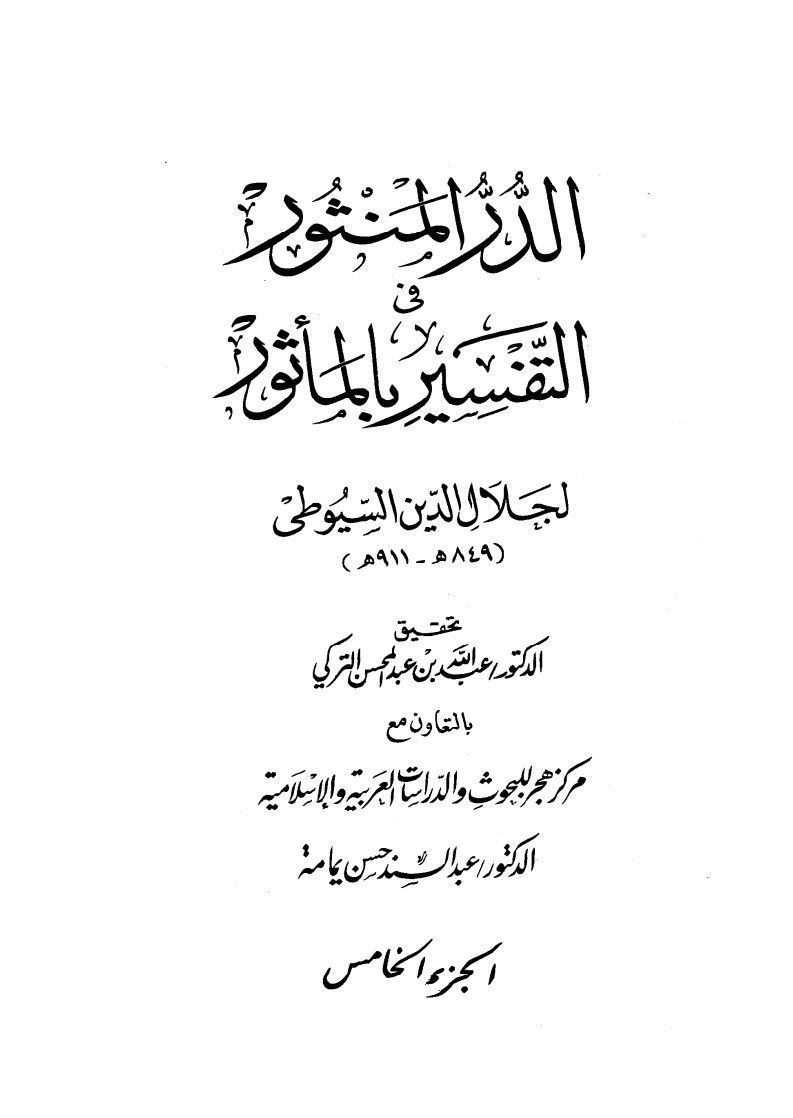 الدُّرُّ المَنْثُور
فى
التَّفْسِيرِ بِالمَأثُور
لجَلَالِ الدِّين السِّيُوطىْ
(٨٤٩هـ - ٩١١هـ)
تحقيق
الدكتور/عبد الله بن عبد المحسن التركي
بالتعاون مع
مركز هجر للبحوث والدراسات العربية والإسلامية
الدكتور/عبد السند حسن يمامة
الجزء الخامس